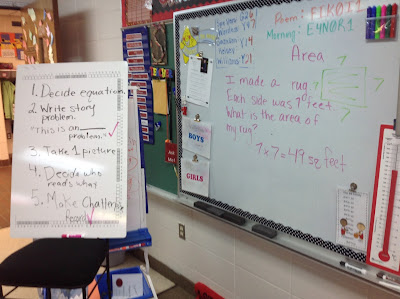 1. Decide equation.
2. Write story
problem.
"This is an ____
problem."
3. Take 1 picture
4. Decide who
reads what
5. Make Challenge
Area
I made a rug.
Each side was 7 feet.
What is the area of
my rug?
7
7
7
7 x 7 = 49 sq feet
Morning:
BOYS
GIRLS